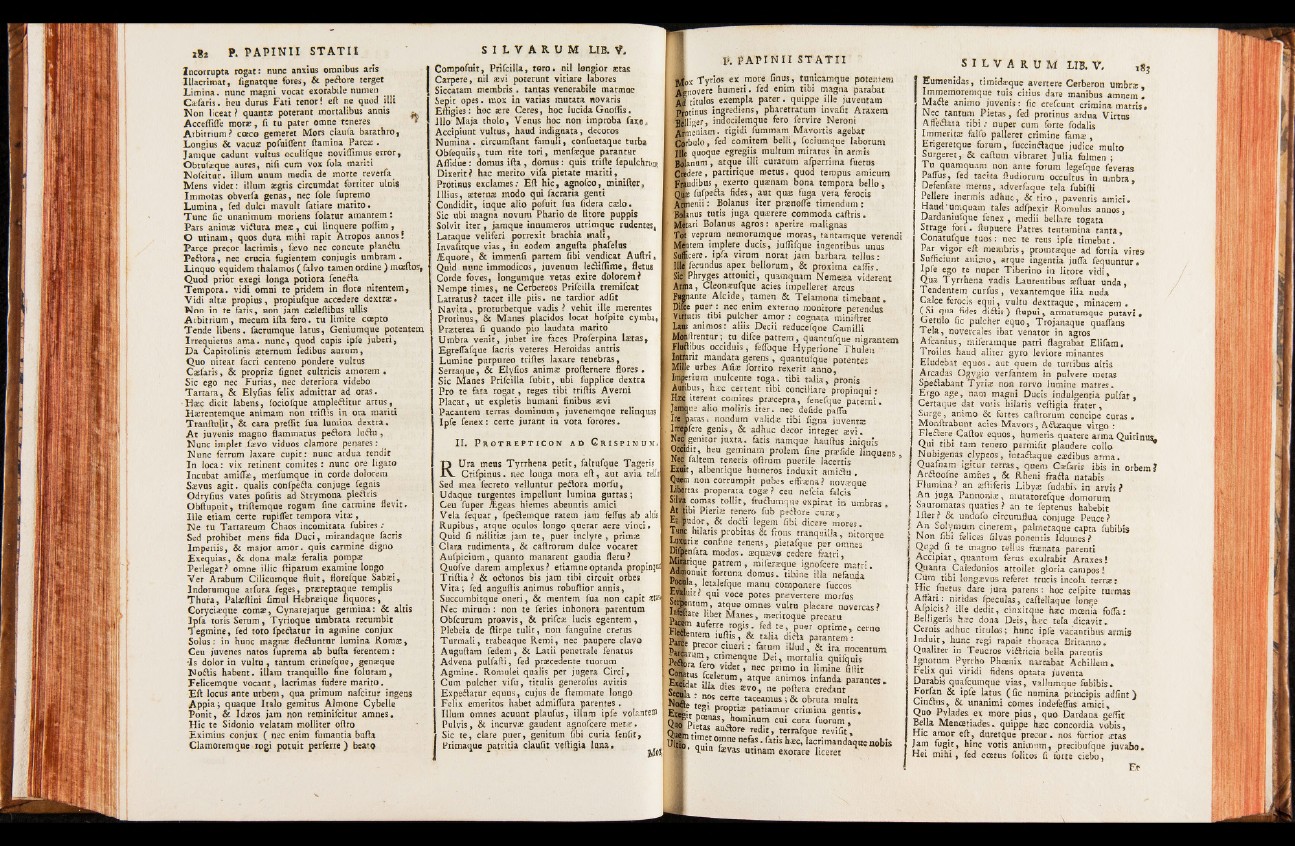 282 P. PAPINII STATII
Incorrupta rogat: nunc anxius omnibus aris
Illacrimat, signatque fores, & pectore terget
Limina. nunc magni vocat exorabile numen
Cæsaris. heu durus Fati tenor! est ne quod illi
Non liceat? quantæ poterant mortalibus annis
Accessisse moræ, si tu pater omne teneres
Arbitrium? cæco gemeret Mors clausa barathro,
Longius & vacuæ posuissent stamina Parcæ.
Jamque cadunt vultus oculisque novissimus error,
Obtusæque aures, nisi cum vox sola mariti
Noscitur. illum unum media de morte reversa
Mens videt: illum ægris circumdat fortiter ulnis
Immotas obversa genas, nec sole supremo
Lumina, sed dulci mavult satiare marito.
Tunc sic unanimum moriens solatur amantem:
Pars animæ victura meæ, cui linquere possim,
O utinam, quos dura mihi rapit Atropos annos!
Parce precor lacrimis, sævo nec concute planctu
Pectora, nec crucia fugientem conjugis umbram.
Linquo equidem thalamos (salvo tamen ordine) mœstos,
Quod prior exegi longa potiora senecta
Tempora. vidi omni te pridem in flore nitentem,
Vidi altæ propius, propiusque accedere dextræ.
Non in te fatis, non jam cælestibus ullis
Arbitrium, mecum ista fero. tu limite cœpto
Tende libens. sacrumque latus, Geniumque potentem
Irrequietus ama. nunc, quod cupis ipse juberi,
Da Capitolinis æternum sedibus aurum,
Quo niteat sacri centeno pondere vultus
Cæsaris, & propriæ signet cultricis amorem.
Sic ego nec Furias, nec deteriora videbo
Tartara, & Elysias felix admittar ad oras.
Hæc dicit labens, sociosque amplectitur artus,
Hærentemque animam non tristis in ora mariti
Transtulit, & cara pressit sua lumina dextra.
At juvenis magno flammatus pectora luctu,
Nunc implet sævo viduos clamore penates:
Nunc ferrum laxare cupit: nunc ardua tendit
In loca: vix retinent comites: nunc ore ligato
Incubat amissæ, mersumque in corde dolorem
Sævus agit. qualis conspecta conjuge segnis
Odrysius vates positis ad Strymona plectris
Obstupuit, tristemque rogum sine carmine flevit.
Ille etiam certe rupisset tempora vitæ,
Ne tu Tartareum Chaos incomitata subires:
Sed prohibet mens fida Duci, mirandaque sacris
Imperiis, & major amor. quis carmine digno
Exequias, & dona malæ feralia pompæ
Perlegat? omne illic stipatum examine longo
Ver Arabum Cilicumque fluit, floresque Sabæi,
Indorumque arsura seges, præreptaque templis
Thura, Palæstini simul Hebræique liquores,
Coryciæque comæ, Cynarejaque germina: & altis
Ipsa toris Serum, Tyrioque umbrata recumbit
Tegmine, sed toto spectatur in agmine conjux
Solus: in hunc magnæ flectuntur lumina Romæ,
Ceu juvenes natos suprema ab busta ferentem:
Is dolor in vultu, tantum crinesque, genæque
Noctis habent. illam tranquillo fine solutam,
Felicemque vocant, lacrimas fudere marito.
Est locus ante urbem, qua primum nascitur ingens
Appia; quaque Italo gemitus Almone Cybelle
Ponit, & Idæos jam non reminiscitur amnes.
Hic te Sidonio velatam molliter ostro
Eximius conjux (nec enim fumantia busta
Clamoremque rogi potuit perferre) beato
SILVARUM LIB. V.
Composuit, Priscilla, toro. nil longior ætas
Carpere, nil ævi poterunt vitiare labores
Siccatam membris. tantas venerabile marmor
Sepit opes. mox in varias mutata novaris
Effigies: hoc ære Ceres, hoc lucida Gnossis.
Illo Maja tholo, Venus hoc non improba saxo,
Accipiunt vultus, haud indignata, decoros
Numina. circumstant famuli, consuetaque turba
Obsequiis, tum rite tori, mensæque parantur
Assidue: domus ista, domus: quis triste sepulchrum
Dixerit? hac merito visa pietate mariti,
Protinus exclames: Est hic, agnosco, minister,
Illius, æternæ modo qui sacraria genti
Condidit, inque alio posuit sua sidera cælo.
Sic ubi magna novum Phario de litore puppis
Solvit iter, jamque innumeros utrimque rudentes,
Lataque veliferi porrexit brachia mali,
Invasitque vias, in eodem angusta phaselus
Æquore, & immensi partem sibi vendicat Austri.
Quid nunc immodicos, juvenum lectissime, fletus
Corde foves, longumque vetas exire dolorem?
Nempe times, ne Cerbereos Priscilla tremiscat
Latratus? tacet ille piis. ne tardior adsit
Navita, proturbetque vadis? vehit ille merentes
Protinus, & Manes placidos locat hospite cymba,
Præterea si quando pio laudata marito
Umbra venit, jubet ire faces Proserpina lætas,
Egressasque sacris veteres Heroidas antris
Lumine purpureo tristes laxare tenebras,
Sertaque, & Elysios animæ prosternere flores.
Sic Manes Priscilla subit, ubi supplice dextra
Pro te fata rogat, reges tibi tristis Averni
Placat, ut expletis humani finibus ævi
Pacantem terras dominum, juvenemque relinquas
Ipse senex: certe jurant in vota sorores.
II. PROTREPTICON AD CRISPINUM.
RUra meus Tyrrhena petit, saltusque Tagetis
Crispinus. nec longa mora est, aut avia
Sed mea secreto velluntur pectora morsu,
Udaque turgentes impellunt lumina guttas;
Ceu super Ægeas hiemes abeuntis amici
Vela sequar, spectemque ratem jam fessus ab altis
Rupibus, atque oculos longo querar aere vinci.
Quid si militiæ jam te, puer inclyte, primæ
Clara rudimenta, & castrorum dulce vocaret
Auspicium, quanto manarent gaudia fletu?
Quosve darem amplexus? etiamne optanda propinquis
Tristia? & octonos bis jam tibi circuit orbes
Vita; sed angustis animus robustior annis,
Succumbitque oneri, & mentem sua non capit ætas.
Nec mirum: non te series inhonora parentum
Obscurum proavis, & priscæ lucis egentem,
Plebeia de stirpe tulit, non sanguine cretus
Turmali, trabeaque Remi, nec paupere clavo
Augustam sedem, & Latii penetrale senatus
Advena pulsasti, sed præcedente tuorum
Agmine. Romulei qualis per jugera Circi,
Cum pulcher visu, titulis generosus avitis
Expectatur equus, cujus de stemmate longo
Felix emeritos habet admissura parentes.
Illum omnes acuunt plausus, illum ipse volantem
Pulvis, & incurvæ gaudent agnoscere metæ.
Sic te, clare puer, genitum sibi curia sensit,
Primaque patritia clausit vestigia luna.
Mox
P. PAPINII STATII
Mox Tyrios ex more sinus, tunicamque potentem
Agnovere humeri. sed enim tibi magna parabat
Ad titulos exempla pater. quippe ille juventam
Protinus ingrediens, pharetratum invasit Araxem
Belliger, indocilemque fero servire Neroni
Armeniam. rigidi summam Mavortis agebat
Corbulo, sed comitem belli, sociumque laborum
Ille quoque egregiis multum miratus in armis
Bolanum, atque illi curatum asperrima suetus
Credere, partirique metus. quod tempus amicum
Fraudibus, exerto quænam bona tempora bello,
Quæ suspecta fides, aut quæ fuga vera ferocis
Armenii: Bolanus iter prænosse timendum:
Bolanus tutis juga quærere commoda castris.
Metari Bolanus agros: aperire malignas
Tot veprum nemorumque moras, tantamque verendi
Mentem implere ducis, jussisque ingentibus unus
Sufficere. ipsa virum norat jam barbara tellus:
Ille secundus apex bellorum, & proxima cassis.
Sic Phryges attoniti, quamquam Nemeæa viderent
Arma, Cleonæusque acies impelleret arcus
Pugnante Alcide, tamen & Telamona timebant.
Disce puer: nec enim externo monitore perendus
Virtutis tibi pulcher amor: cognata ministret
Laus animos: aliis Decii reducesque Camilli
Monstrentur: tu disce patrem, quantusque nigrantem
Fluctibus occiduis, fessoque Hyperione Thulen
Intrarit mandata gerens, quantusque potentes
Mille urbes Asiæ sortito rexerit anno,
Imperium mulcente toga. tibi talia, pronis
Auribus, hæc certent tibi conciliare propinqui:
Hæc iterent comites præcepta, senesque paterni.
Jamque alio moliris iter. nec deside passu
Ire paras. nondum validæ tibi signa juventæ
Irrepsere genis, & adhuc decor integer ævi.
Nec genitor juxta. fatis namque haustus iniquis
Occidit, heu geminam prolem sine præside linquens,
Nec saltem teneris ostrum puerile lacertis
Exuit, albentique humeros induxit amictu.
Quem non corrumpit pubes effræna? novæque
Libertas properata togæ? ceu nescia falcis
Silva comas tollit, fructumque expirat in umbras.
At tibi Pieriæ tenero sub pectore curæ,
Et pudor, & docti legem sibi dicere mores.
Tunc hilaris probitas & frons tranquilla, nitorque
Luxuriæ confine tenens, pietasque per omnes
Dispensata modos. æquævo cedere fratri,
Mirarique patrem, miseræque ignoscere matri.
Admonuit fortuna domus. tibine illa nefanda
Pocula, letalesque manu componere succos
Evaluit? qui voce potes prævertere morsus
Serpentum, atque omnes vultu placare novercas?
Infestare libet Manes, meritoque precatu
Pacem auferre rogis. sed te, puer optime, cerno
Flectentem justis, & talia dicta parantem:
Parce precor cineri: fatum illud, & ira nocentum
Parcarum, crimenque Dei, mortalia quisquis
Pectora sero videt, nec primo in limine sistit
Conatus scelerum, atque animos infanda parantes.
Excidat illa dies ævo, ne postera credant
Secula: nos certe taceamus; & obruta multa
Nocte tegi propriæ patiamur crimina gentis.
Exegit pœnas, hominum cui cura suorum,
Quo Pietas auctore redit, terrasque revisit,
Quem timet omne nefas. satis hæc, lacrimandaque nobis
Ultio. quin sævas utinam exorare liceret
SILVARUM LIB. V. 183
Eumenidas, timidæque avertere Cerberon umbræ,
Immemoremque tuis citius dare manibus amnem.
Macte animo juvenis: sic crescunt crimina matris.
Nec tantum Pietas, sed protinus ardua Virtus
Affectata tibi: nuper cum forte sodalis
Immeritæ falso palleret crimine famæ,
Erigeretque forum, succinctaque judice multo
Surgeret, & castum vibraret Julia fulmen;
Tu quamquam non ante forum legesque severas
Passus, sed tacita studiorum occultus in umbra,
Defensare metus, adversaque tela subisti
Pellere inermis adhuc, & tiro, paventis amici.
Haud umquam tales adspexit Romulus annos,
Dardaniusque senex, medii bellare togata
Strage fori. stupuere Patres tentamina tanta,
Conatusque tuos: nec te reus ipse timebat.
Par vigor est membris, promtæque ad fortia vires
Sufficiunt animo, atque ingentia jussa sequuntur.
Ipse ego te nuper Tiberino in litore vidi,
Qua Tyrrhena vadis Laurentibus æstuat unda,
Tendentem cursus, vexantemque ilia nuda
Calce ferocis equi, vultu dextraque, minacem.
(Si qua fides dictis) stupui, armatumque putavi.
Getulo sic pulcher equo, Trojanaque quassans
Tela, novercales ibat venator in agros
Ascanius, miseramque patri flagrabat Elisam.
Troilus haud aliter gyro leviore minantes
Eludebat equos. aut quem de turribus altis
Arcadas Ogygio versantem in pulvere metas
Spectabant Tyriæ non torvo lumine matres.
Ergo age, nam magni Ducis indulgentia pulsat,
Certaque dat votis hilaris vestigia frater,
Surge, animo & fortes castrorum concipe curas.
Monstrabunt acies Mavors, Actæaque virgo:
Flectere Castor equos, humeris quatere arma Quirinus,
Qui tibi tam tenero permisit plaudere collo
Nubigenas clypeos, intactaque cædibus arma.
Quasnam igitur terras, quem Cæsaris ibis in orbem?
Arctoosne amnes, & Rheni fracta natabis
Flumina? an æstiferis Libyæ sudabis in arvis?
An juga Pannoniæ, mutatoresque domorum
Sauromatas quaties? an te septenus habebit
Ister? & undoso circumflua conjuge Peuce?
An Solymum cinerem, palmetaque capta subibis
Non sibi felices silvas ponentis Idumes?
Quod si te magno tellus frænata parenti
Accipiat, quantum ferus exultabit Araxes!
Quanta Caledonios attollet gloria campos!
Cum tibi longævus referet trucis incola terræ:
Hic suetus dare jura parens: hoc cespite turmas
Affari: nitidas speculas, castellaque longe
Aspicis? ille dedit, cinxitque hæc mœnia fossa:
Belligeris hæc dona Deis, hæc tela dicavit.
Cernis adhuc titulos; hunc ipse vacantibus armis
Induit, hunc regi rapuit thoraca Britanno.
Qualiter in Teucros victricia bella parentis
Ignotum Pyrrho Phœnix narrabat Achillem.
Felix qui viridi fidens optata juventa
Durabis quascumque vias, vallumque subibis.
Forsan & ipse latus (sic numina principis adsint)
Cinctus, & unanimi comes indefessus amici,
Quo Pylades ex more pius, quo Dardana gessit
Bella Menœtiades. quippe hæc concordia vobis,
Hic amor est, duretque precor. nos fortior ætas
Jam fugit, hinc votis animum, precibusque juvabo.
Hei mihi, sed cœtus solitos si forte ciebo,
Et